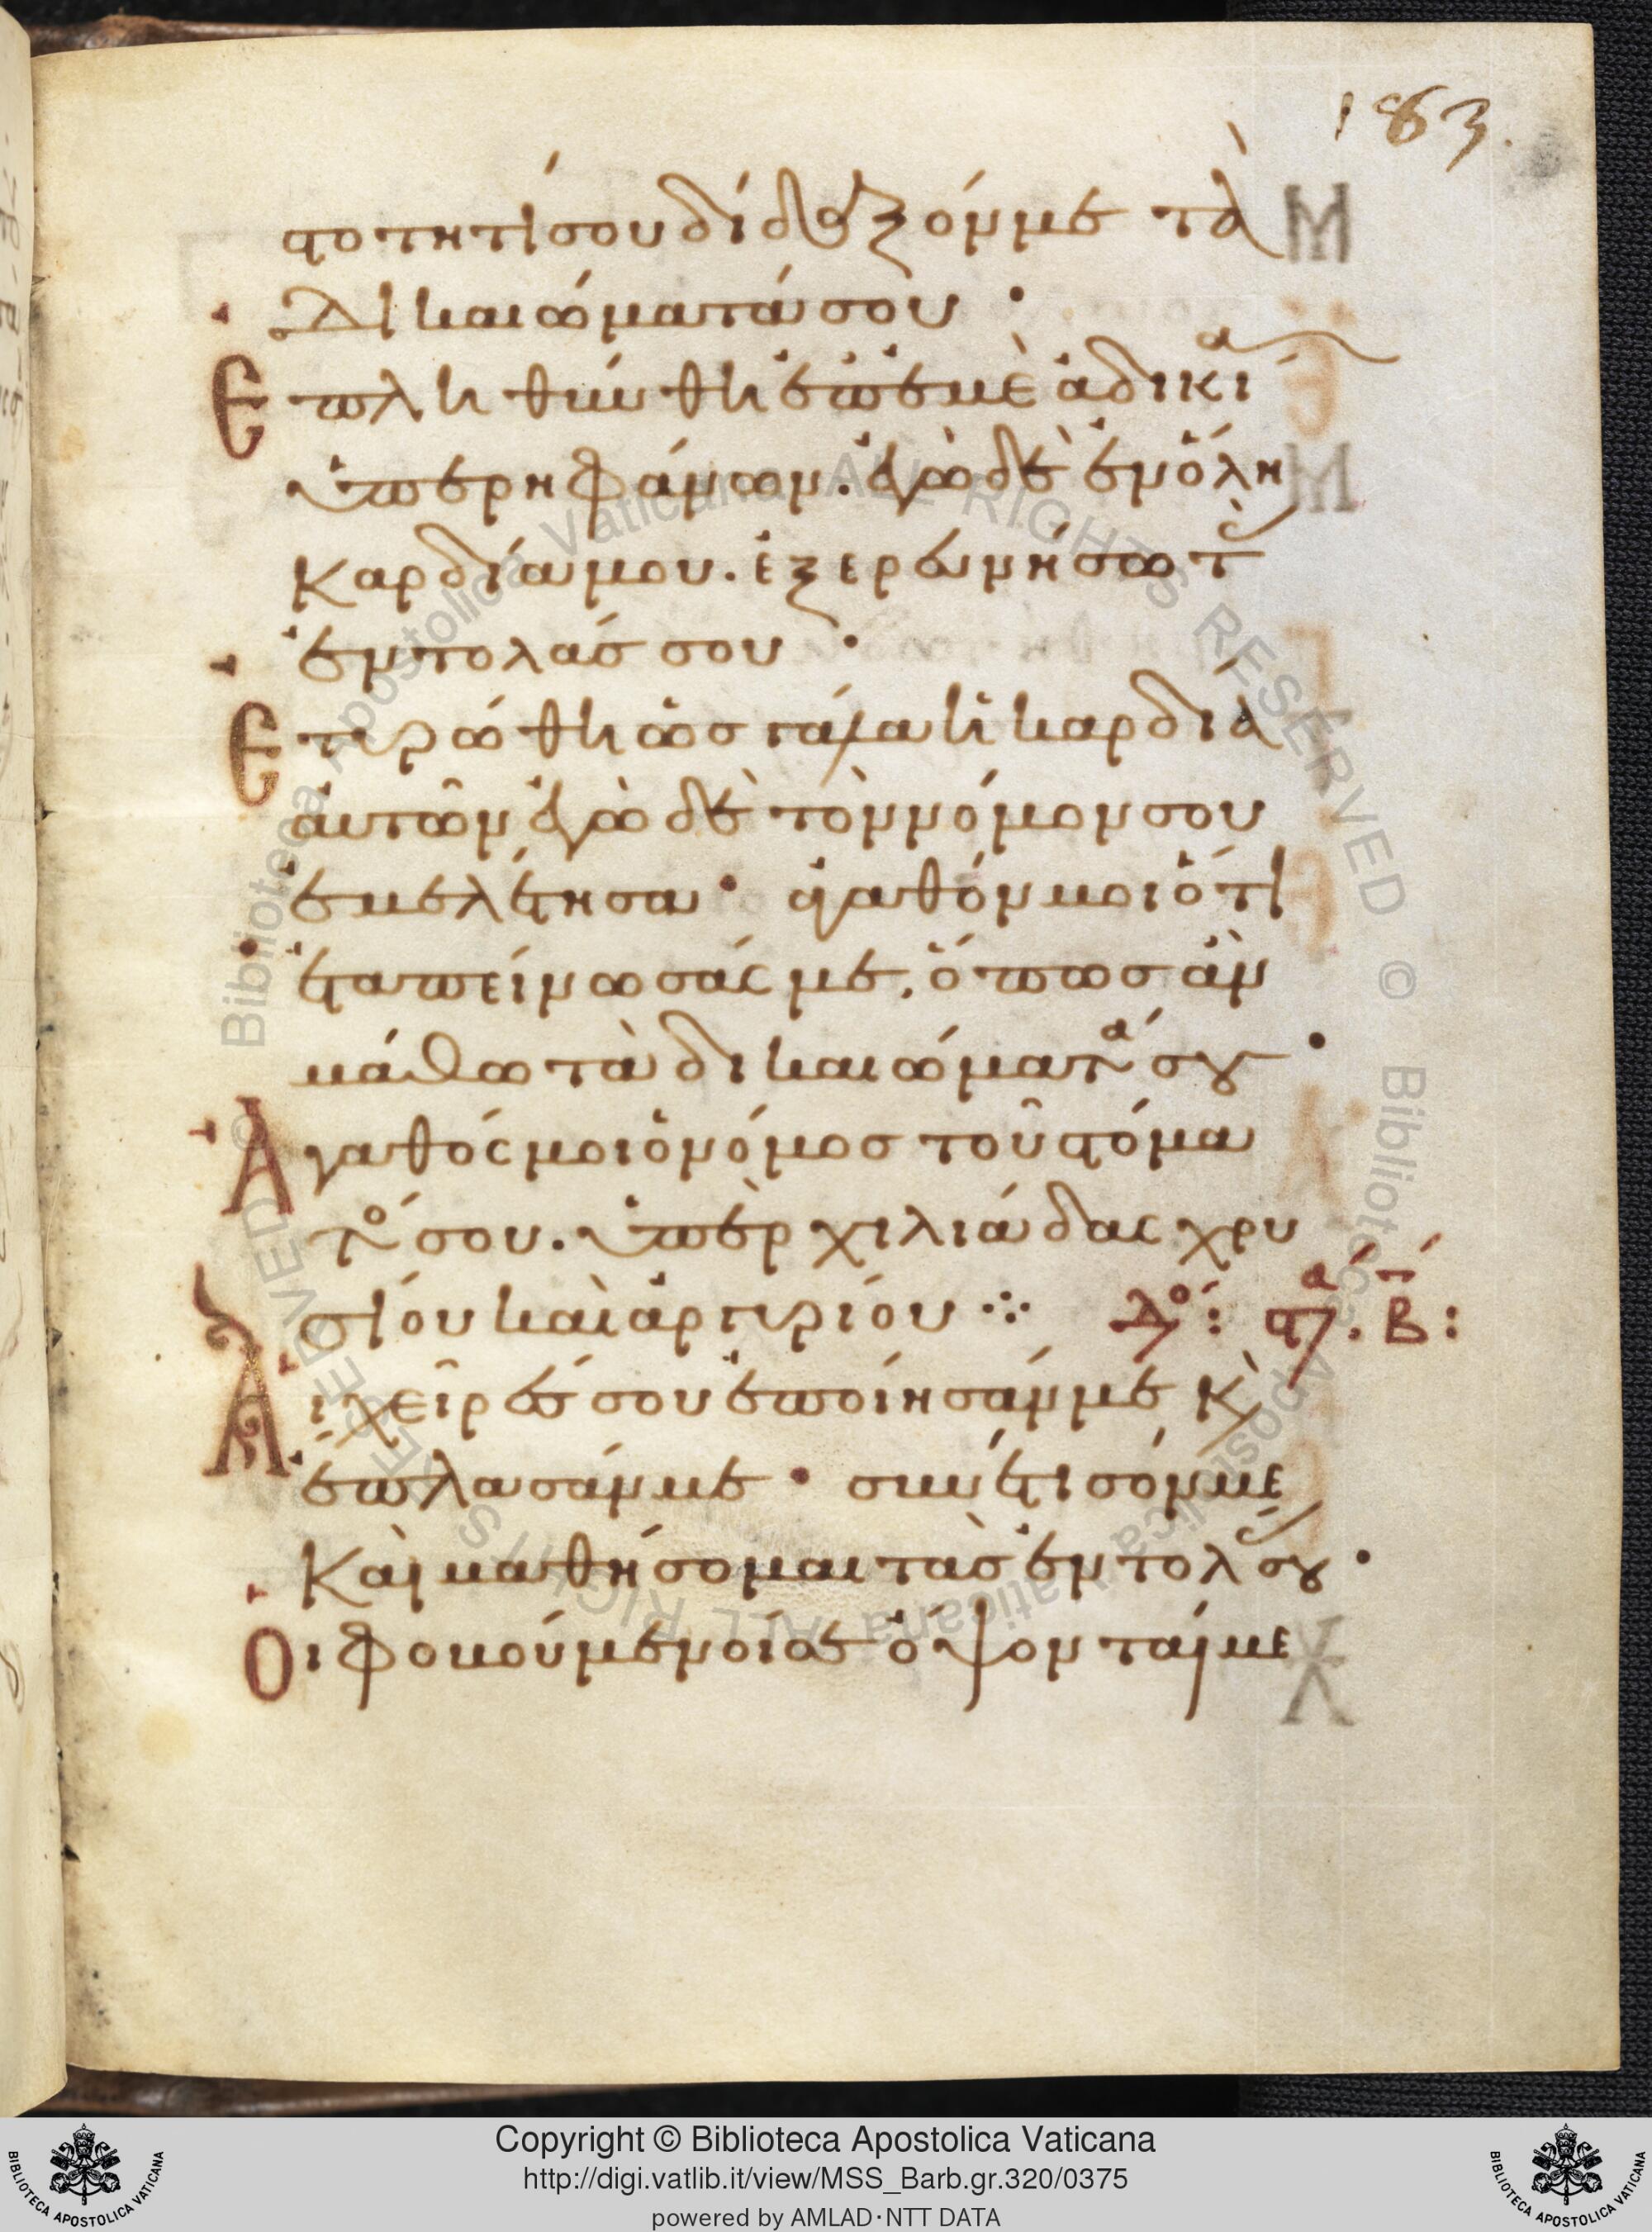 183.
στοτητί σου δίδαξόν με τὰ
Δικαιώματά σου ·
Επληθύνθη ἐπ' ἐμὲ ἀδικία
ὑπερηφάνων. ἐγὼ δὲ ἐν ὅλη
Καρδία μου. ἐξερευνήσω τὰς
ἐντολάς σου ·
Ετυρώθη ὡς γάλα ἡ καρδία
αὐτῶν ἐγὼ δὲ τὸν νόμον σου
ἐμελέτησα · ἀγαθόν μοι ὅτι
ἐταπείνωσάς με. ὅπως ἂν
μάθω τὰ δικαιώματά σου ·
Αγαθός μοι ὁ νόμος τοῦ στόμα
τός σου. ὑπὲρ χιλιάδας χρυ
σίου καὶ ἀργυρίου ⁘ Δό: στ. α Β:
Αι χεῖρές σου ἐποίησάν με κ
ἔπλασάν με · συνέτισόν με
Καὶ μαθήσομαι τὰς ἐντολάς σου ·
Οι φοβούμενοί σε ὄψονταί με
Biblioteca Apostolica Vaticana ALL RIGHTS RESERVED © Biblioteca Apostolica Vaticana ALL RIGHTS RESERVED ©
Copyright © Biblioteca Apostolica Vaticana
http://digi.vatlib.it/view/MSS_Barb.gr.320/0375
powered by AMLAD·NTT DATA
BIBLIOTECA APOSTOLICA VATICANA
BIBLIOTECA APOSTOLICA VATICANA